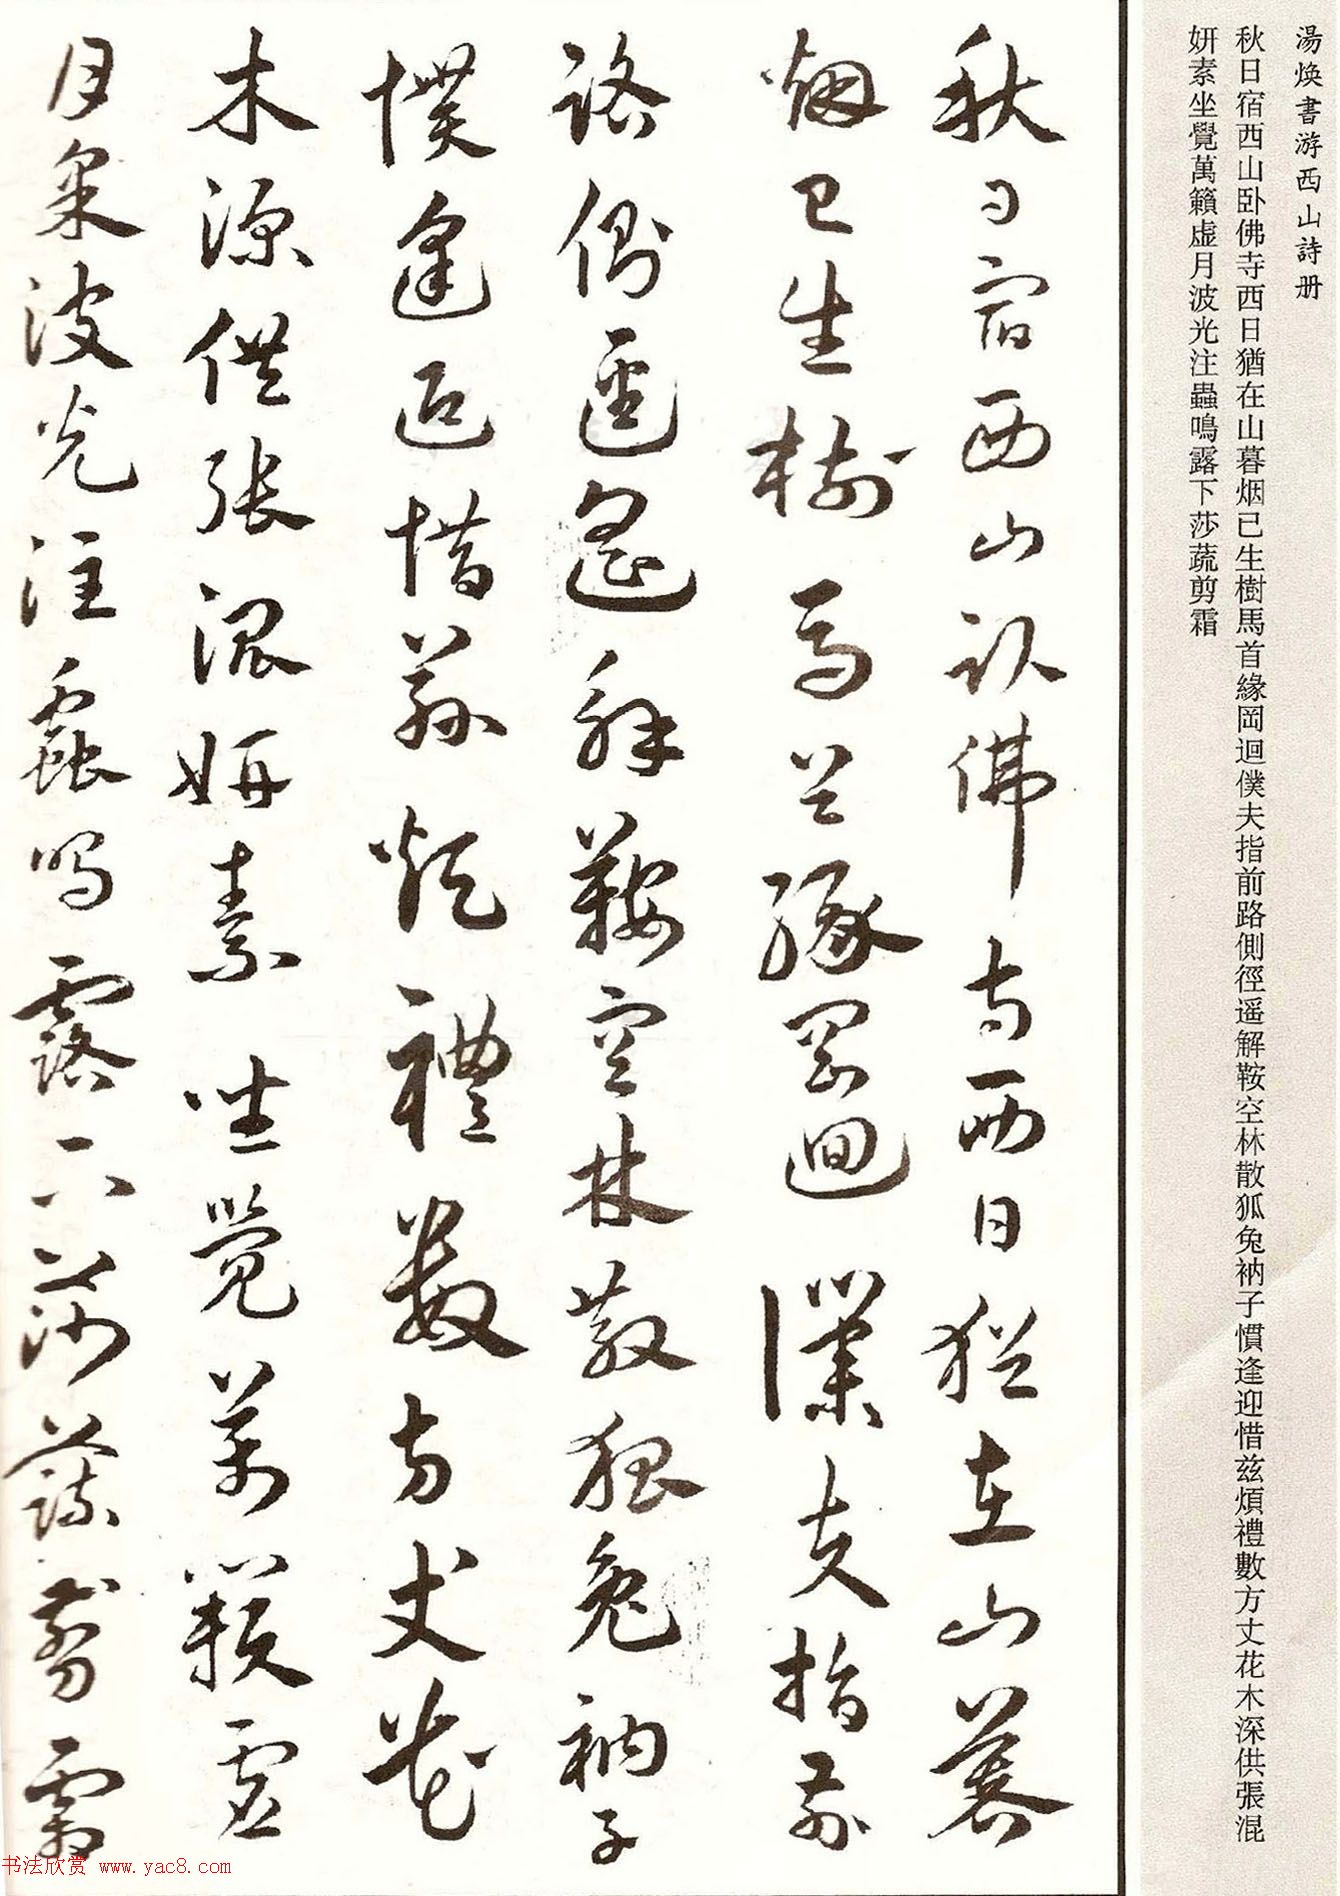 湯煥書游西山詩册
秋日宿西山卧佛寺西日猶在山暮烟已生樹馬首緣岡迴僕夫指前路側徑遥解鞍空林散狐兔衲子慣逢迎惜兹煩禮數方丈花木深供張混
妍素坐覺萬籟虚月波光注蟲鳴露下莎蔬剪霜
秋日宿西山卧佛寺西日猶在山暮
烟已生樹馬首緣岡迴僕夫指前
路側徑遥解鞍空林散狐兔衲子
慣逢迎惜兹煩禮數方丈花
木深供張混妍素坐覺萬籟虚
月來波光注蟲鳴露下莎蔬剪霜
书法欣赏 www.yac8.com